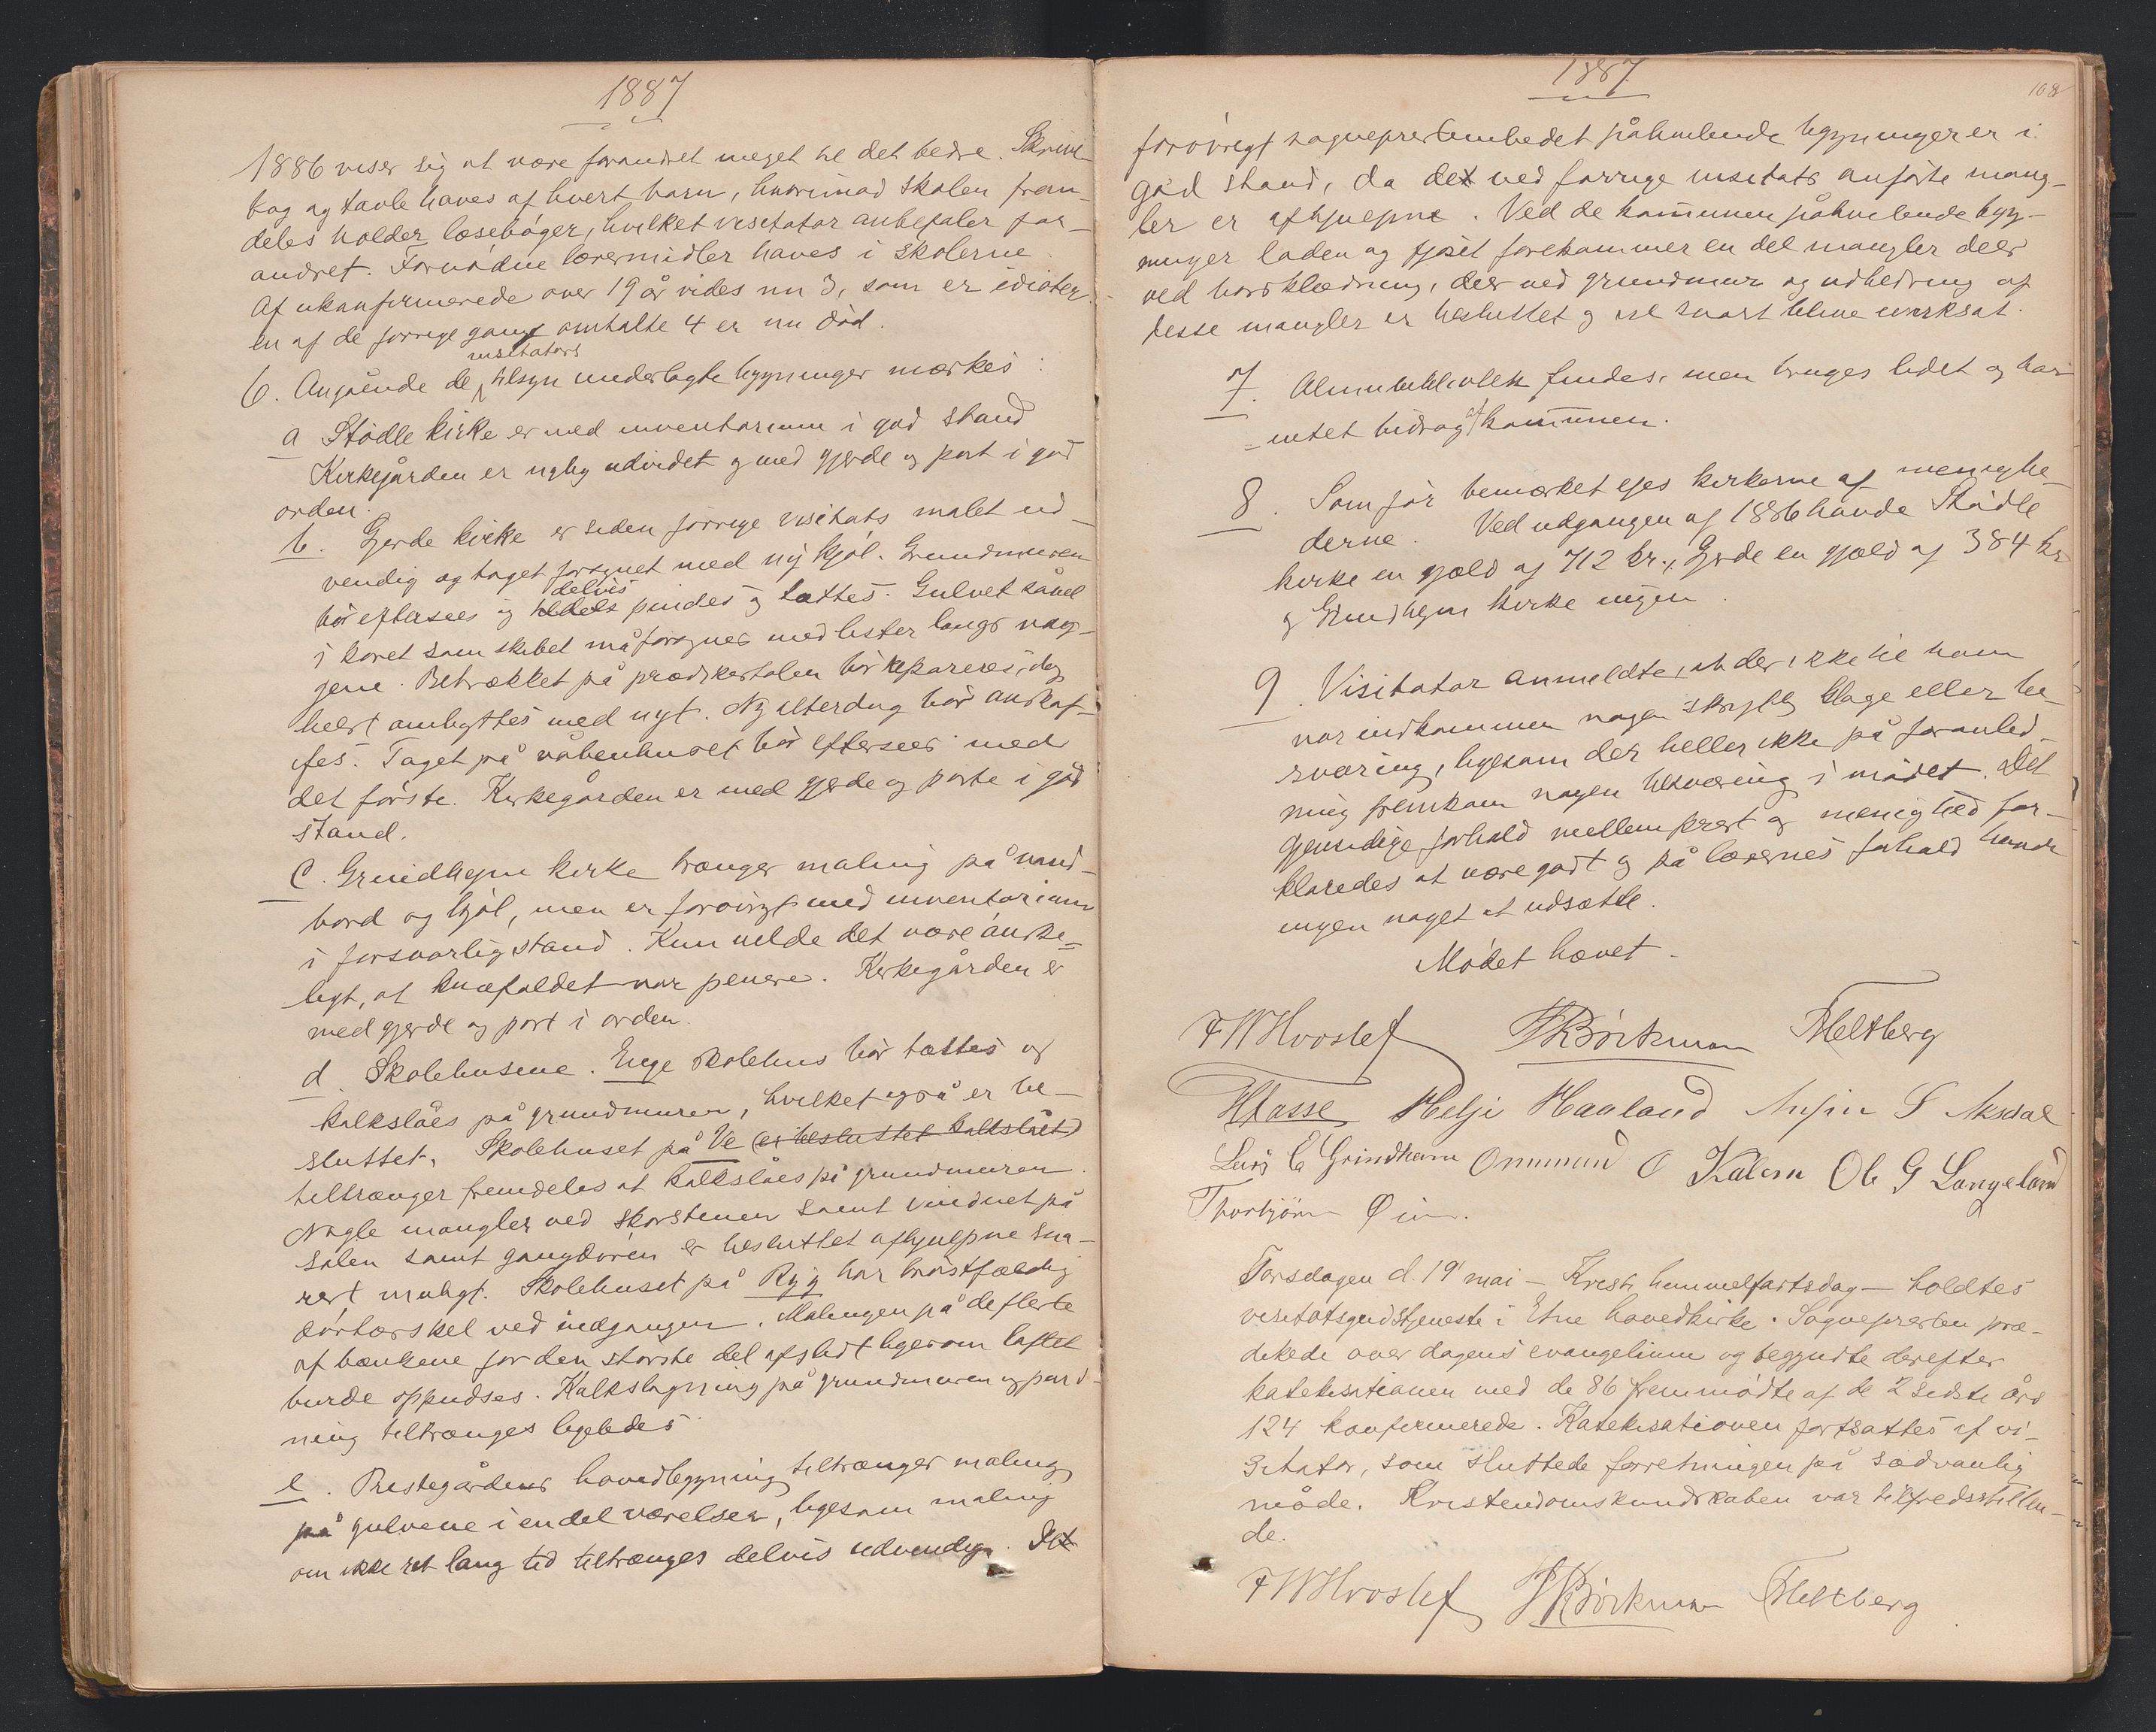 1887
1886 viser sig at være forandret meget til det bedre. Skrive-
bog og tavle haves af hvert barn, hvorimod skolen frem-
deles holder læsebøger, hvilket visitator anbefaler for-
andret. Fornødne læremidler haves i skolerne.
Af ukonfirmerede over 19 år vides nu 3, som er idioter
en af de forrige gang omtalte 4 er nu død.
6. Angående de visitators tilsyn underlagte bygninger mærkes:
a Stødle kirke er med inventarium i god stand
Kirkegården er nylig udvidet og med gjerde og port i god
orden.
b. Gjerde kirke er siden forrige visitats malet ud-
vendig og taget forsynet med ny kjøl. Grundmuren
bør eftersees og heldels delvis pindes og tættes. Gulvet såvel
i koret som skibet må forsynes med lister langs væg-
gene. Betrækket på prædikestolen bør repareres, dog
helst ombyttes med nyt. Ny alterdug bør anskaf-
fes. Taget på våbenhuset bør eftersees med
det første. Kirkegården er med gjerde og porte i god
stand.
C. Grindhejm kirke trænger maling på vand-
bord og kjøl, men er forøvrigt med inventarium
i forsvarlig stand. Kun vilde det være ønske-
ligt, at knæfaldet var penere. Kirkegården er
med gjerde og port i orden.
d. Skolehusene. Enge skolehus bør tættes og
kalkslåes på grundmuren, hvilket også er be-
sluttet. Skolehuset på Ve (er besluttet kalkslået)
tiltrænger fremdeles at kalkslåes på grundmuren.
Nogle mangler ved skorstenen samt vinduet på
salen samt gangdøren er besluttet afhjulpne sna-
rest muligt. Skolehuset på Ryg har brøstfældig
dørtærskel ved indgangen. Malingen på de fleste
af bænkene for den største del afslidt ligesom loftet
burde oppudses. Kalkslagning på grundmuren og
ning tiltrænges ligeledes.
e. Prestegårdens hovedbygning tiltrænger maling
på gulvene i en del værelser, ligesom maling
om ikke ret lang tid tiltrænges delvis udvendig. De
1887.
108
forøvrigt sogneprestembedet påhvilende bygninger er i
god stand, da de ved forrige visitats anførte mang-
ler er afhjulpne. Ved de kommunen påhvilende byg-
ninger laden og fjøset forekommer en del mangler dels
ved bordklædning, dels ved grundmur og udbedring af
desse mangler er besluttet og vil snart blive iverksat.
7. Almuebibliothek findes, men bruges lidet og har
intet bidrag af kommunen.
8. Som før bemærket ejes kirkerne af menighe-
derne. Ved udgangen af 1886 havde Stødle
kirke en gjæld af 712 kr., Gjerde en gjæld af 384 kr
og Grindhejm kirke ingen.
9. Visitator anmeldte, at der ikke til ham
var indkommen nogen skriftlig klage eller be-
sværing, ligesom der heller ikke på foranled-
ning fremkom nogen besværing i mødet. Det
gjensidige forhold mellem prest og menighed for-
klaredes at være godt og på lærernes forhold havde
ingen noget at udsætte.
Mødet hævet.
F W Hvoslef JRBörkman Meltberg
HLasse Helje Haaland Anfin S Aksdal
Lars E Grindheim Ommund O Kalem Ole G Langeland
Thorbjørn Øin.
Torsdagen d. 19 mai – Kristi himmelfartsdag – holdtes
visitatsgudstjeneste i Etne hovedkirke. Sognepresten præ-
dikede over dagens evangelium og begyndte derefter
katekisationen med de 86 fremmødte af de 2 sidste års
124 konfirmerede. Katekisationen fortsattes af vi-
sitator, som sluttede forretningen på sædvanlig
måde. Kristendomskundskaben var tilfredsstillen-
de.
F W Hvoslef JRBörkman Meltberg